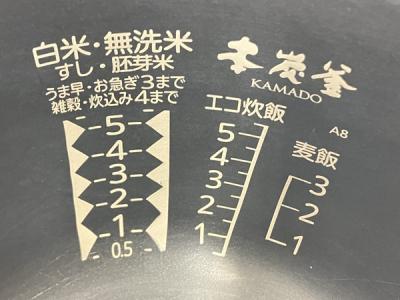 白米・無洗米
すし・胚芽米
うま早・お急ぎ3まで
雑穀・炊込み4まで
5
4
3
2
1
0.5
本炭釜
KAMADO
エコ炊飯
5
4
3
2
1
A8
麦飯
3
2
1